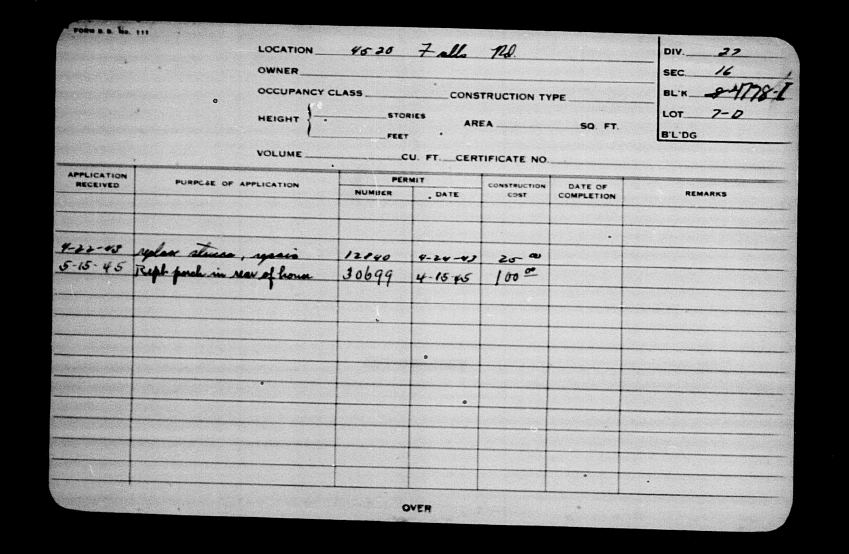 FORM B. B. No. 111
LOCATION 4520 Falls Rd.
OWNER
OCCUPANCY CLASS CONSTRUCTION TYPE
HEIGHT STORIES
FEET
AREA SQ. FT.
VOLUME CU. FT. CERTIFICATE NO.
DIV. 27
SEC. 16
BL'K 4778-I
LOT 7-D
B'L'DG
APPLICATION RECEIVED PURPOSE OF APPLICATION PERMIT NUMBER DATE CONSTRUCTION COST DATE OF COMPLETION REMARKS
4-22-43 replace stucco, repair 12890 4-24-43 25 00
5-15-45 Repl. porch in rear of house 30699 4-15-45 100 00
OVER